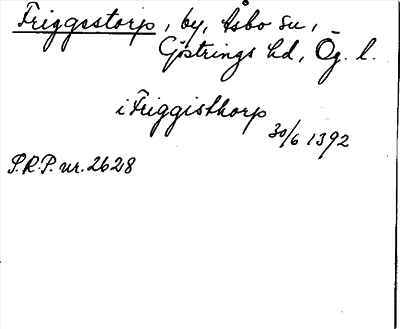 Friggestorp, by, Åsbo sn,
Göstrings hd, Ög. l.
i Friggisthorp
30/6 1392
P.R.P. nr. 2628